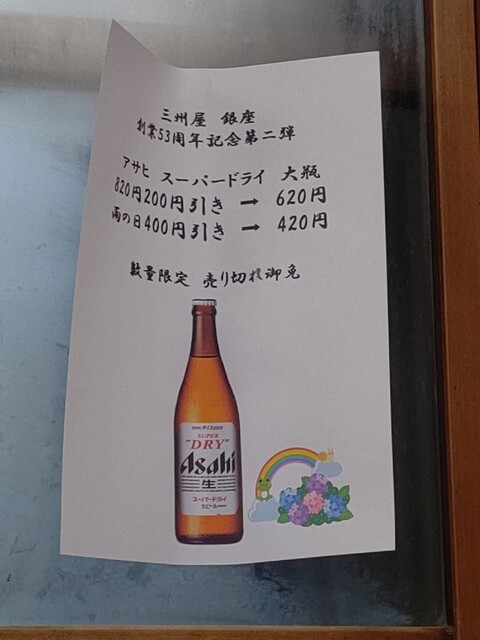 三州屋 銀座
創業53周年記念第二弾
アサヒ スーパードライ 大瓶
820円200円引き → 620円
雨の日400円引き → 420円
数量限定 売り切れ御免
SUPER
"DRY"
Asahi
生
スーパードライ
生ビール